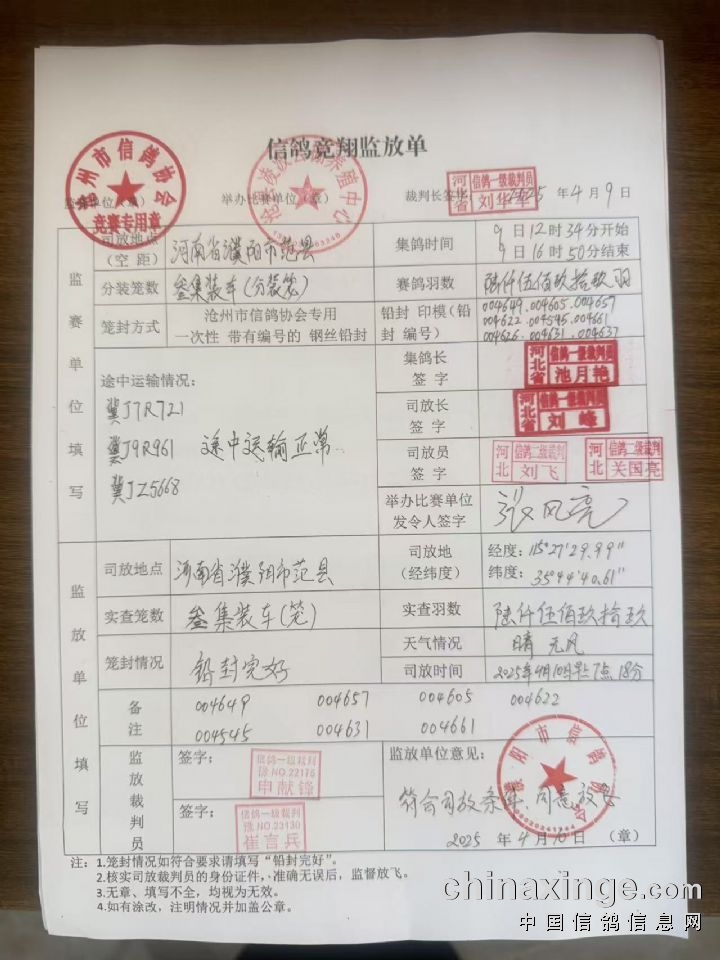 信鸽竞翔监放单
沧州市信鸽协会
竞赛专用章
举办比赛单位(章)
裁判长签字
河北省 信鸽一级裁判员 刘华军
2025 年 4 月 9 日
监赛单位填写
司放地点(空距)
河南省濮阳市范县
集鸽时间
9 日 12 时 34 分开始
9 日 16 时 50 分结束
分装笼数
叁集装车(分装笼)
赛鸽羽数
陆仟伍佰玖拾玖羽
笼封方式
沧州市信鸽协会专用
一次性 带有编号的 钢丝铅封
铅封 印模(铅封 编号)
004649.004605.004657
004622.004545.004661
004626.004631.004637
途中运输情况:
冀J7R721
冀J9R961 途中运输正常
冀JZ5668
集鸽长签字
河北省 信鸽一级裁判员 池月艳
司放长签字
河北省 信鸽一级裁判员 刘峰
司放员签字
河北 信鸽二级裁判 刘飞
河北 信鸽二级裁判 关国亮
举办比赛单位
发令人签字
张风亮
监放单位填写
司放地点
河南省濮阳市范县
司放地(经纬度)
经度: 115°27'29.99"
纬度: 35°44'40.61"
实查笼数
叁集装车(笼)
实查羽数
陆仟伍佰玖拾玖
笼封情况
铅封完好
天气情况
晴 无风
司放时间
2025年4月10日早7点18分
备注
004649 004657 004605 004622
004545 004631 004661
监放裁判员
签字:
信鸽一级裁判
豫NO.22175
申献锋
签字:
信鸽一级裁判
豫NO.23130
崔言兵
监放单位意见:
符合司放条件.同意放飞
濮阳市信鸽协会
2025 年 4 月 10 日 (章)
注: 1.笼封情况如符合要求请填写“铅封完好”。
2.核实司放裁判员的身份证件,准确无误后,监督放飞。
3.无章、填写不全,均视为无效。
4.如有涂改,注明情况并加盖公章。
chinaxinge.com
中国信鸽信息网